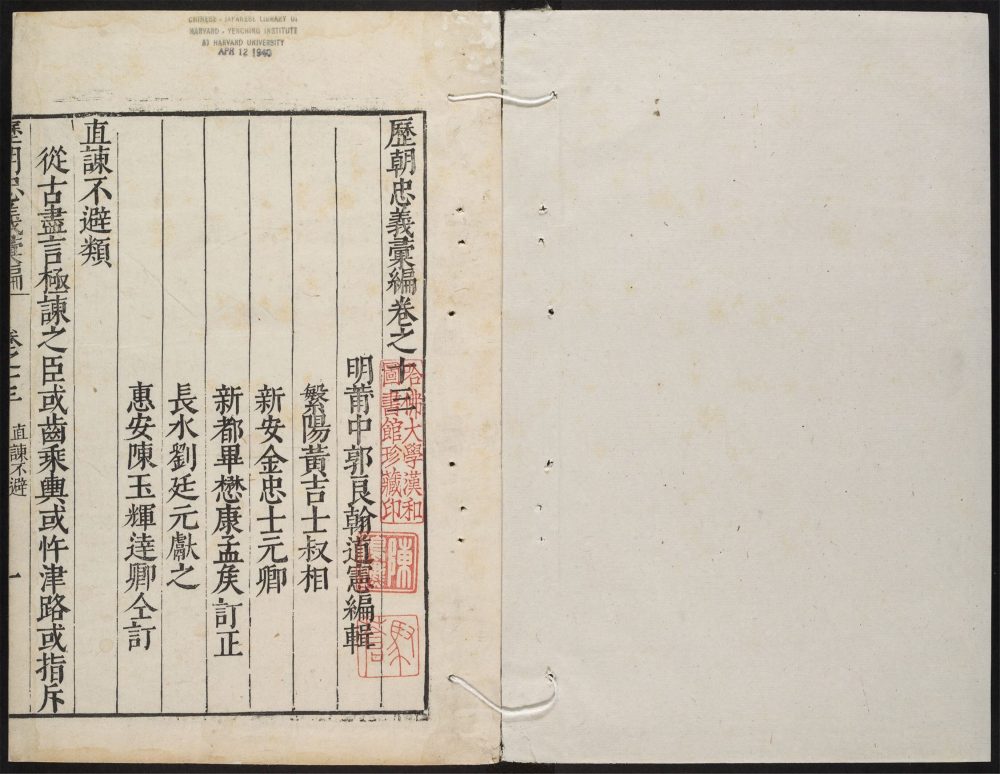 CHINESE - JAPANESE LIBRARY OF
HARVARD - YENCHING INSTITUTE
AT HARVARD UNIVERSITY
APR 12 1940
歷朝忠義彙編卷之十三
明莆中郭良翰道憲編輯
繁陽黃吉士叔相
新安金忠士元卿
新都畢懋康孟矦訂正
長水劉廷元獻之
惠安陳玉輝達卿仝訂
直諫不避類
從古盡言極諫之臣或齒乘輿或忤津路或指斥
歷朝忠義彙編
卷之十三
直諫不避
一
哈佛大學漢和
圖書館珍藏印
陳